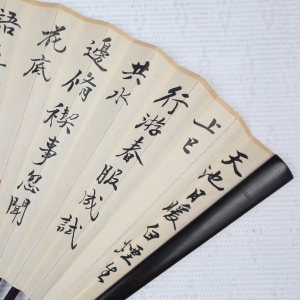 天池日暖白煙生
上巳
行游春服成試
共水
邊脩禊事忽聞
花底
語